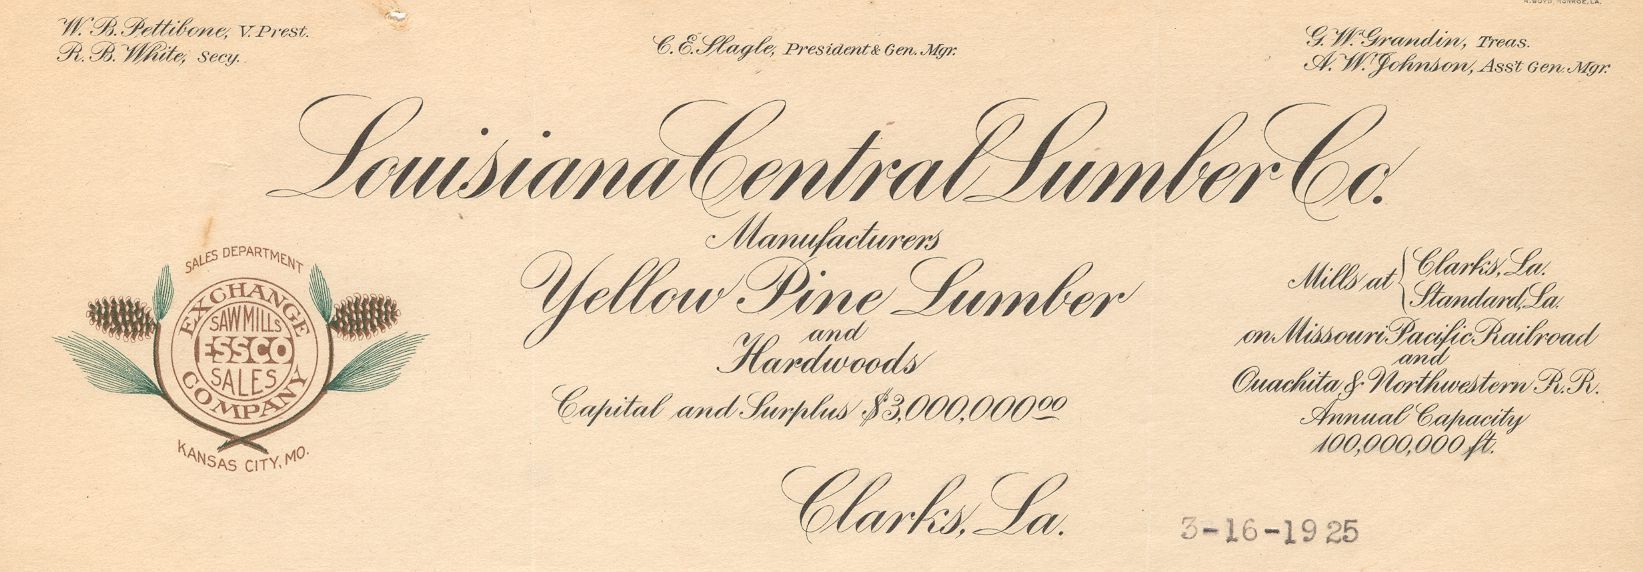 N. BOYD, MONROE, LA.
W. B. Pettibone, V. Prest.
R. B. White, Secy.
C. E. Slagle, President & Gen. Mgr.
G. W. Grandin, Treas.
A. W. Johnson, Ass't Gen. Mgr.
Louisiana Central Lumber Co.
Manufacturers
Yellow Pine Lumber
and
Hardwoods
Capital and Surplus $3,000,000.00
SALES DEPARTMENT
EXCHANGE
SAWMILLS
ESSCO
SALES
COMPANY
KANSAS CITY, MO.
Mills at { Clarks, La.
Standard, La.
on Missouri Pacific Railroad
and
Ouachita & Northwestern R.R.
Annual Capacity
100,000,000 ft.
Clarks, La.
3-16-1925